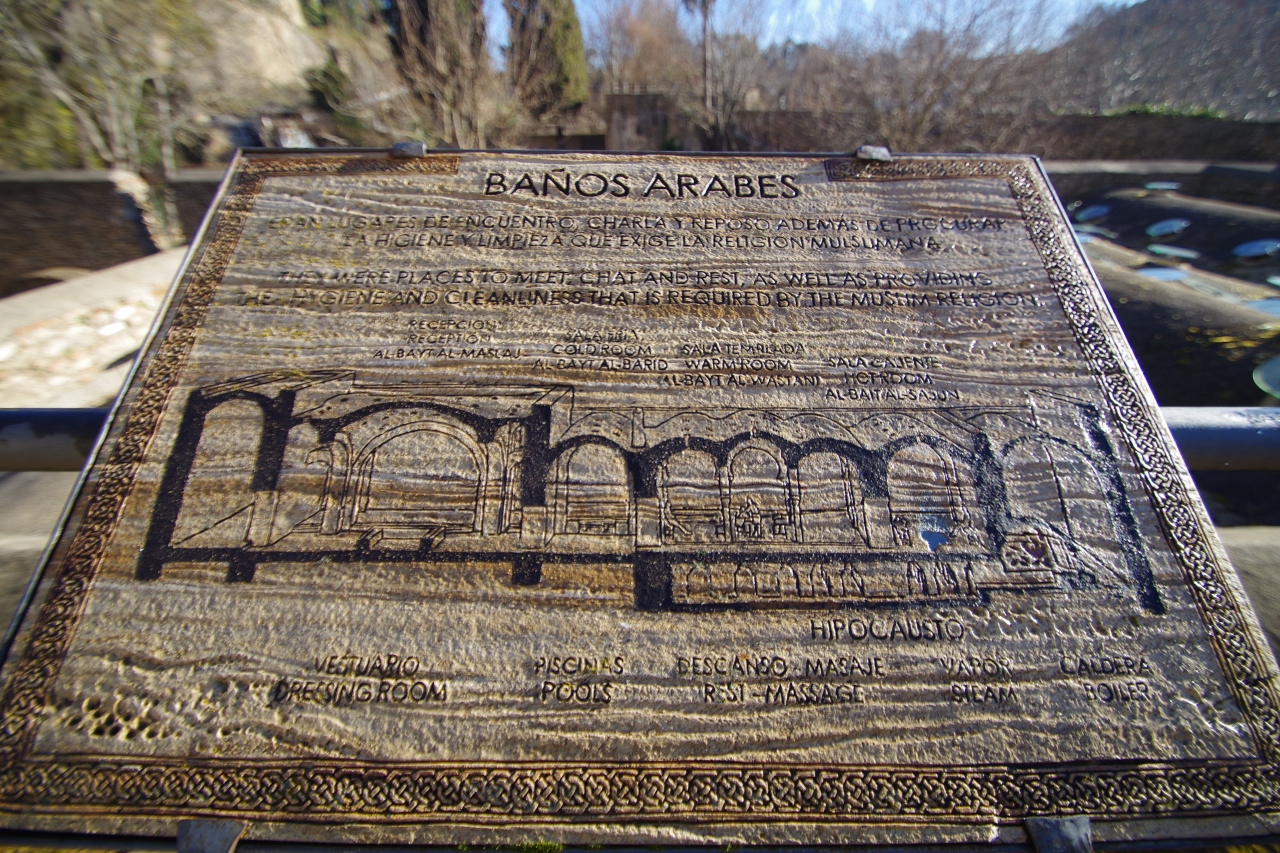 BAÑOS ARABES
ERAN LUGARES DE ENCUENTRO, CHARLA Y REPOSO ADEMÁS DE PROCURAR
LA HIGIENE Y LIMPIEZA QUE EXIGE LA RELIGION MULSUMANA.
THEY WERE PLACES TO MEET, CHAT AND REST, AS WELL AS PROVIDING
THE HYGIENE AND CLEANLINESS THAT IS REQUIRED BY THE MUSLIM RELIGION.
RECEPCION
RECEPTION
AL-BAYT AL-MASLAJ
SALA FRIA
COLD ROOM
AL-BAYT AL-BARID
SALA TEMPLADA
WARM ROOM
AL-BAYT AL-WASTANI
SALA CALIENTE
HOT ROOM
AL-BAIT AL-SAJUN
HIPOCAUSTO
VESTUARIO
DRESSING ROOM
PISCINAS
POOLS
DESCANSO - MASAJE
REST - MASSAGE
VAPOR
STEAM
CALDERA
BOILER